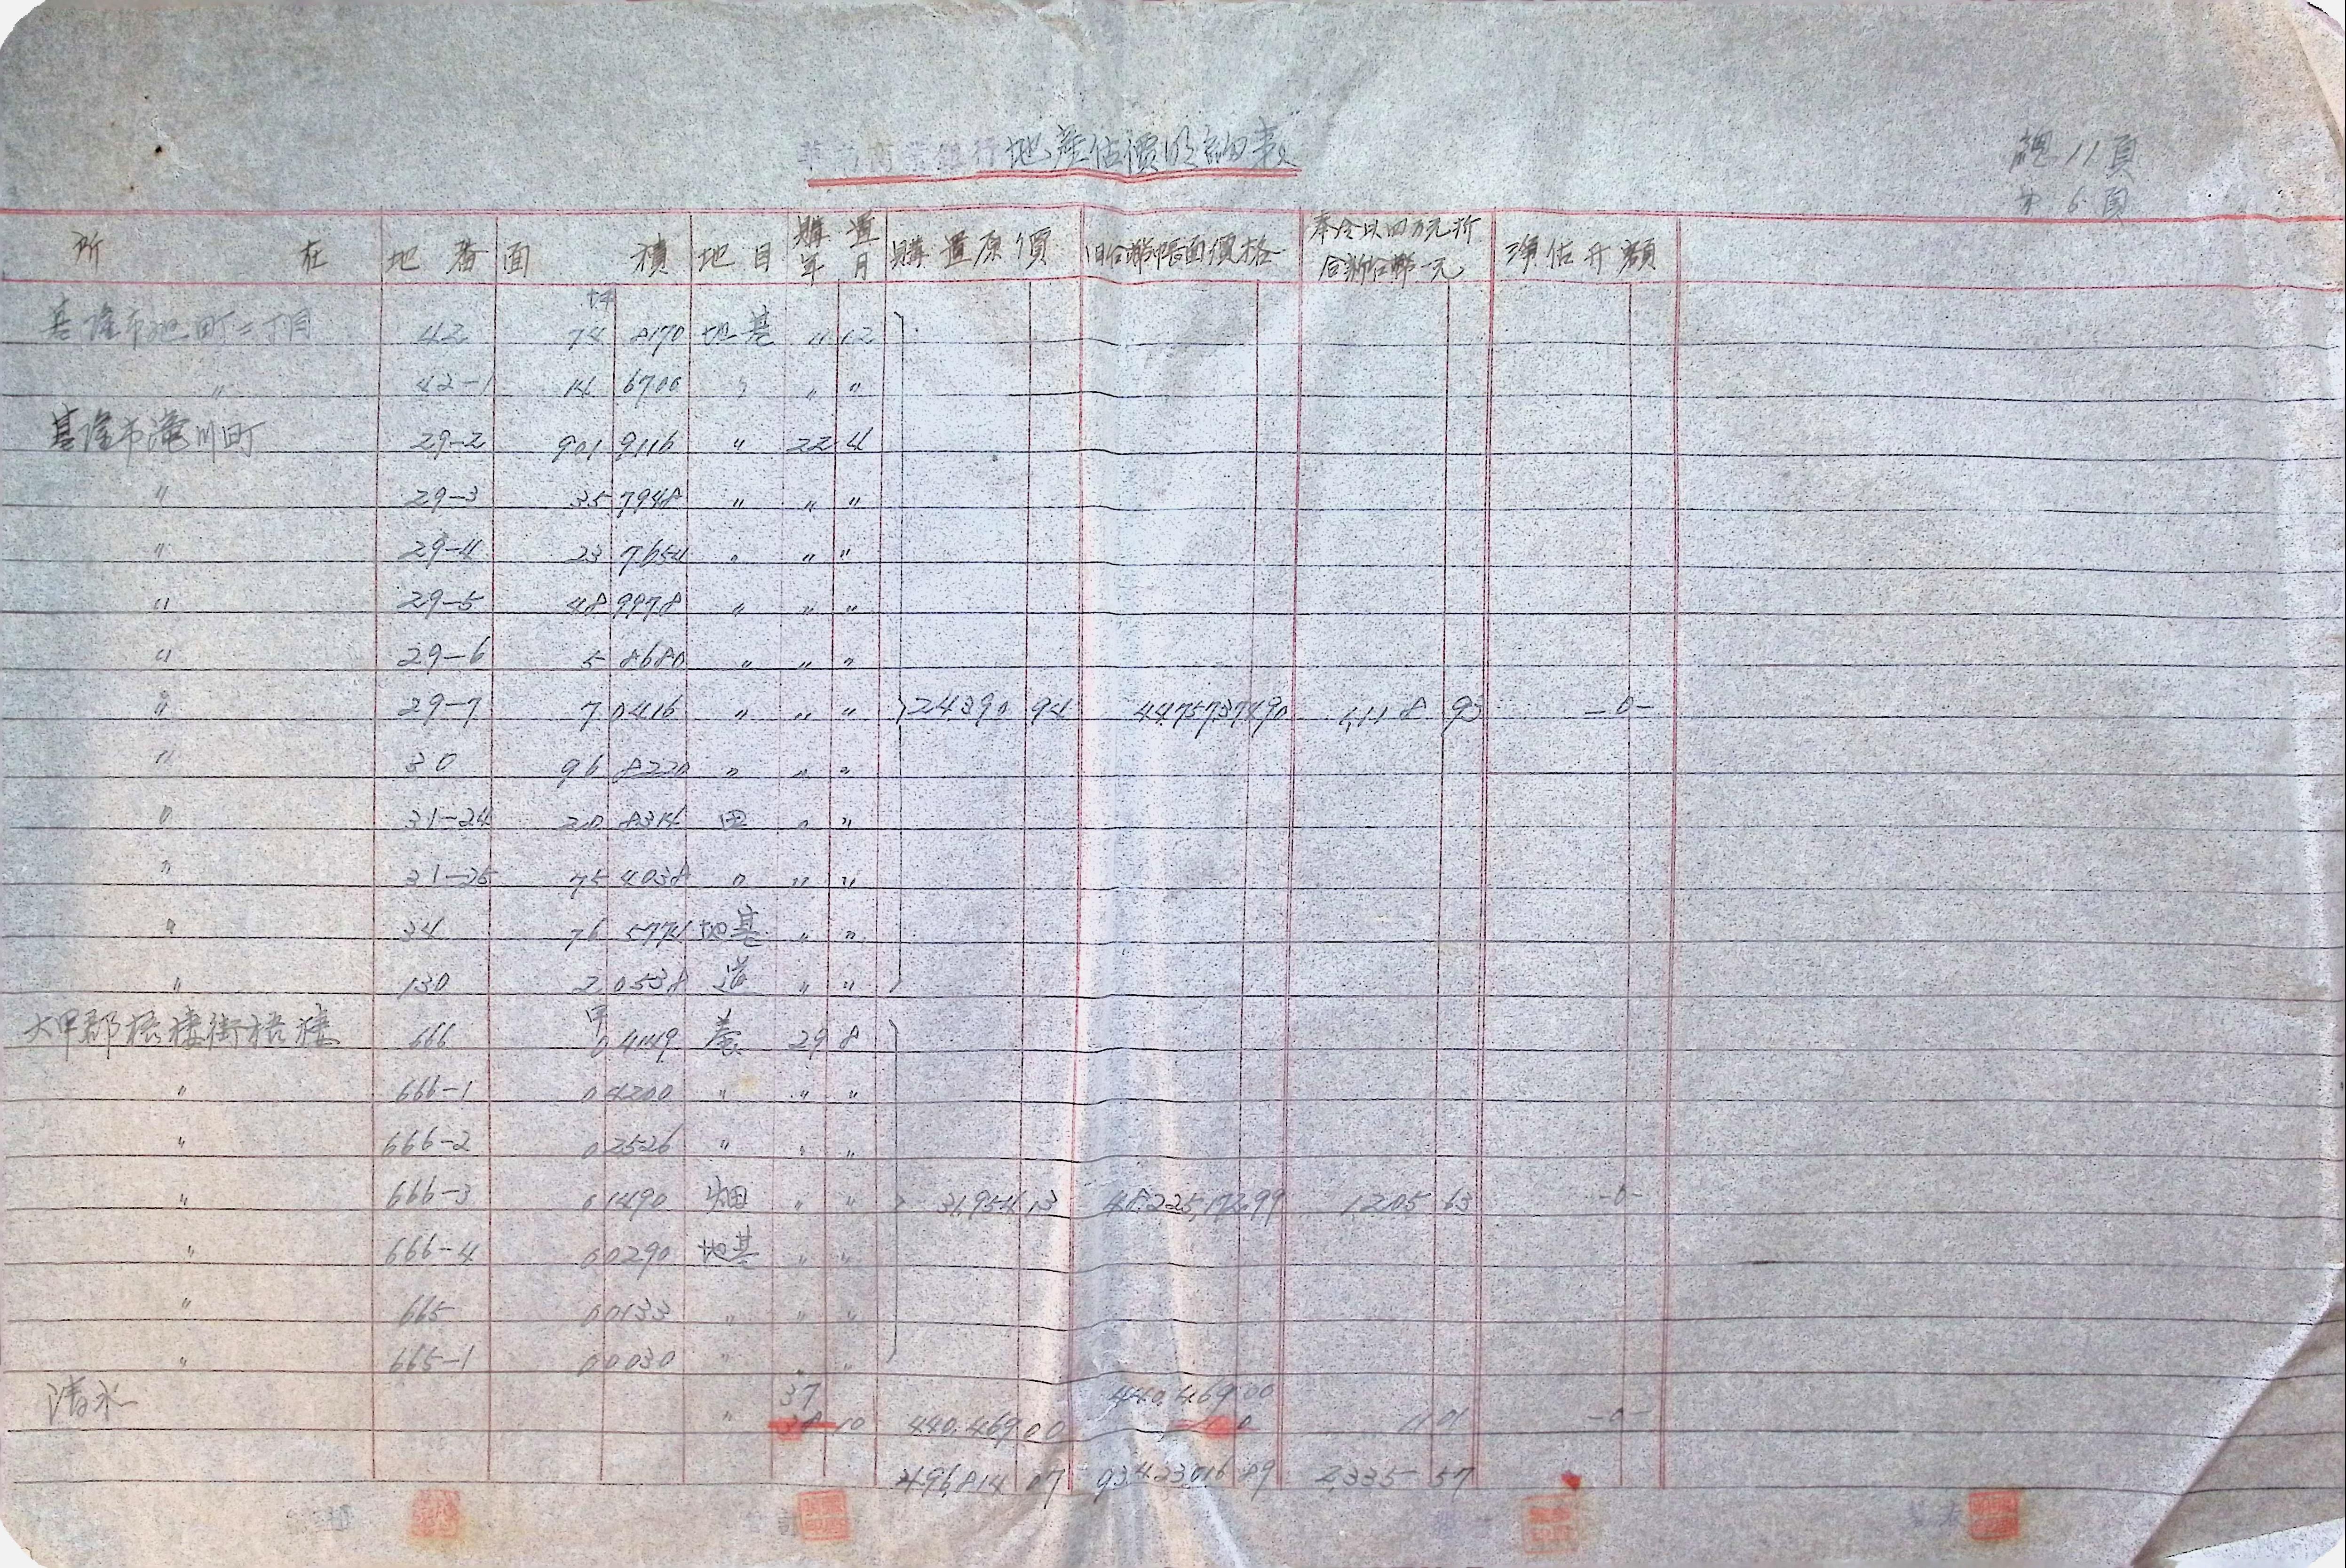 華南商業銀行地產估價明細表
總 11 頁
第 6 頁
所在 地番 面積 地目 購置年月 購置原價 旧台幣帳面價格 奉令以四万元折合新台幣一元 淨估升額
基隆市旭町二丁目 42 74 8170 地基 11 12
〃 42-1 14 6700 〃 〃 〃
基隆市瀧川町 29-2 901 9116 〃 22 4
〃 29-3 35 7948 〃 〃 〃
〃 29-4 23 7654 〃 〃 〃
〃 29-5 48 9978 〃 〃 〃
〃 29-6 5 8680 〃 〃 〃
〃 29-7 7 0416 〃 〃 〃 24390 94 44757374 90 1,118 93 -0-
〃 30 96 8220 〃 〃 〃
〃 31-24 20 8314 田 〃 〃
〃 31-25 75 4038 〃 〃 〃
〃 34 76 5774 地基 〃 〃
〃 130 2 0538 道 〃 〃
甲
大甲郡梧棲街梧棲 666 0 4149 養 29 8
〃 666-1 0 4200 〃 〃 〃
〃 666-2 0 2526 〃 〃 〃
〃 666-3 0 1490 畑 〃 〃 31,954 13 48,225,172 99 1,205 63 -0-
〃 666-4 0 0290 地基 〃 〃
〃 665 0 0133 〃 〃 〃
〃 665-1 0 0030 〃 〃 〃
37 440,469 00
清水 〃 10 440,469 00 11 01 -0-
496,814 07 93,423,016 89 2,335 57